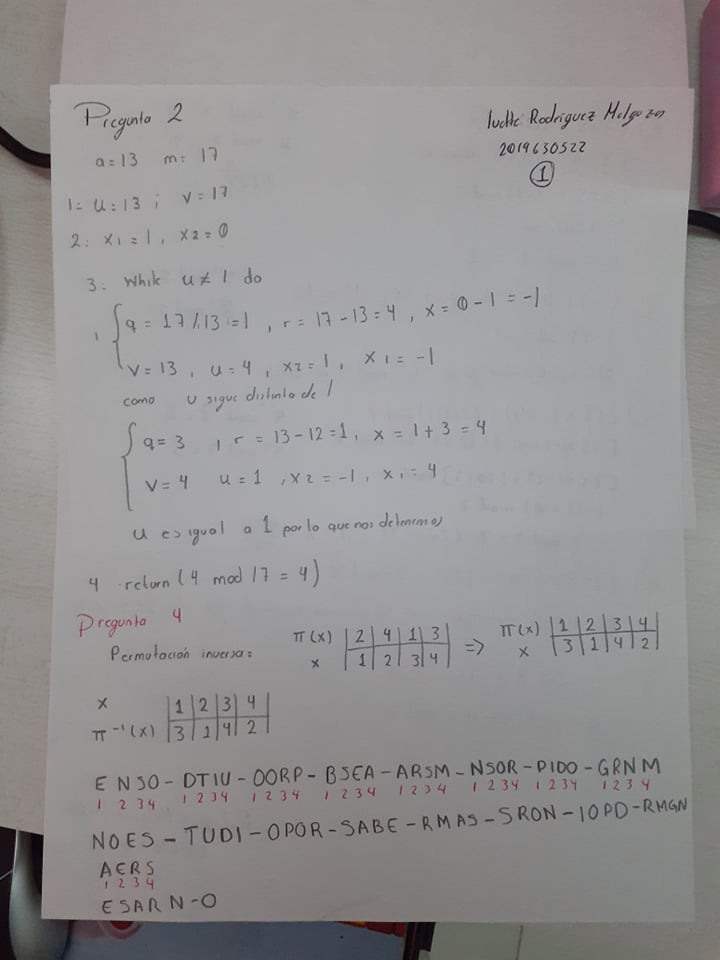 Pregunta 2
Rodriguez
2019630522
1
a=13 m= 17
1: u:13 ; v=17
2: x1=1, x2=0
3: While u≠1 do
1 { q= 17/.13=1, r= 17-13=4, x= 0-1=-1
v=13, u=4, x2=1, x1=-1
como u sigue distinto de 1
{ q=3, r= 13-12=1, x= 1+3=4
v=4 u=1, x2=-1, x1=4
u es igual a 1 por lo que nos detenemos
4 return(4 mod 17=4)
Pregunta 4
Permutación inversa: π(x) |2|4|1|3| => π(x) |1|2|3|4|
x |1|2|3|4| x |3|1|4|2|
x |1|2|3|4|
π⁻¹(x) |3|1|4|2|
ENSO-DTIU-OORP-BSEA-ARSM-NSOR-PIDO-GRNM
1 2 3 4 1 2 3 4 1 2 3 4 1 2 3 4 1 2 3 4 1 2 3 4 1 2 3 4 1 2 3 4
NOES-TUDI-OPOR-SABE-RMAS-SRON-IOPD-RMGN
AERS
1 2 3 4
ESAR N-O